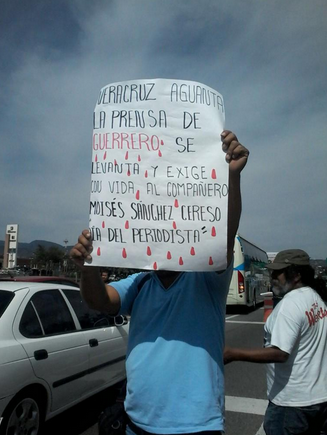 VERACRUZ AGUANTA
LA PRENSA DE
GUERRERO SE
LEVANTA Y EXIGE
CON VIDA AL COMPAÑERO
MOISÉS SÁNCHEZ CERESO
DÍA DEL PERIODISTA"